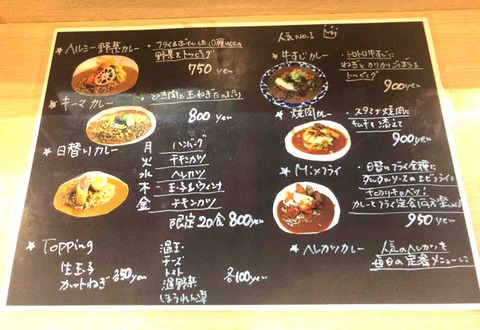 ★ヘルシー野菜カレー
・フライ&ボイルした10種以上の
野菜をトッピング
750yen
★キーマカレー
・ひき肉と玉ねぎたっぷり
800yen
★日替りカレー
月 ハンバーグ
火 チキンカツ
水 ヘレカツ
木 玉子&ウィンナ
金 チキンカツ
限定20食 800yen
★Topping
生玉子
カットねぎ 各50yen
温玉
チーズ
トマト
温野菜
ほうれん草
各100yen
人気NO.1
★牛すじカレー
・トロトロ牛すじに
ねぎとカリカリごぼうを
トッピング
900yen
★焼肉カレー
・スタミナ焼肉に
キムチを添えて
900yen
★Mixフライ
・日替りフライ
タルタルソースのエビフライと
カレーとフライ定食
950yen
★ヘレカツカレー
人気のヘレカツを
毎日の定番メニューに